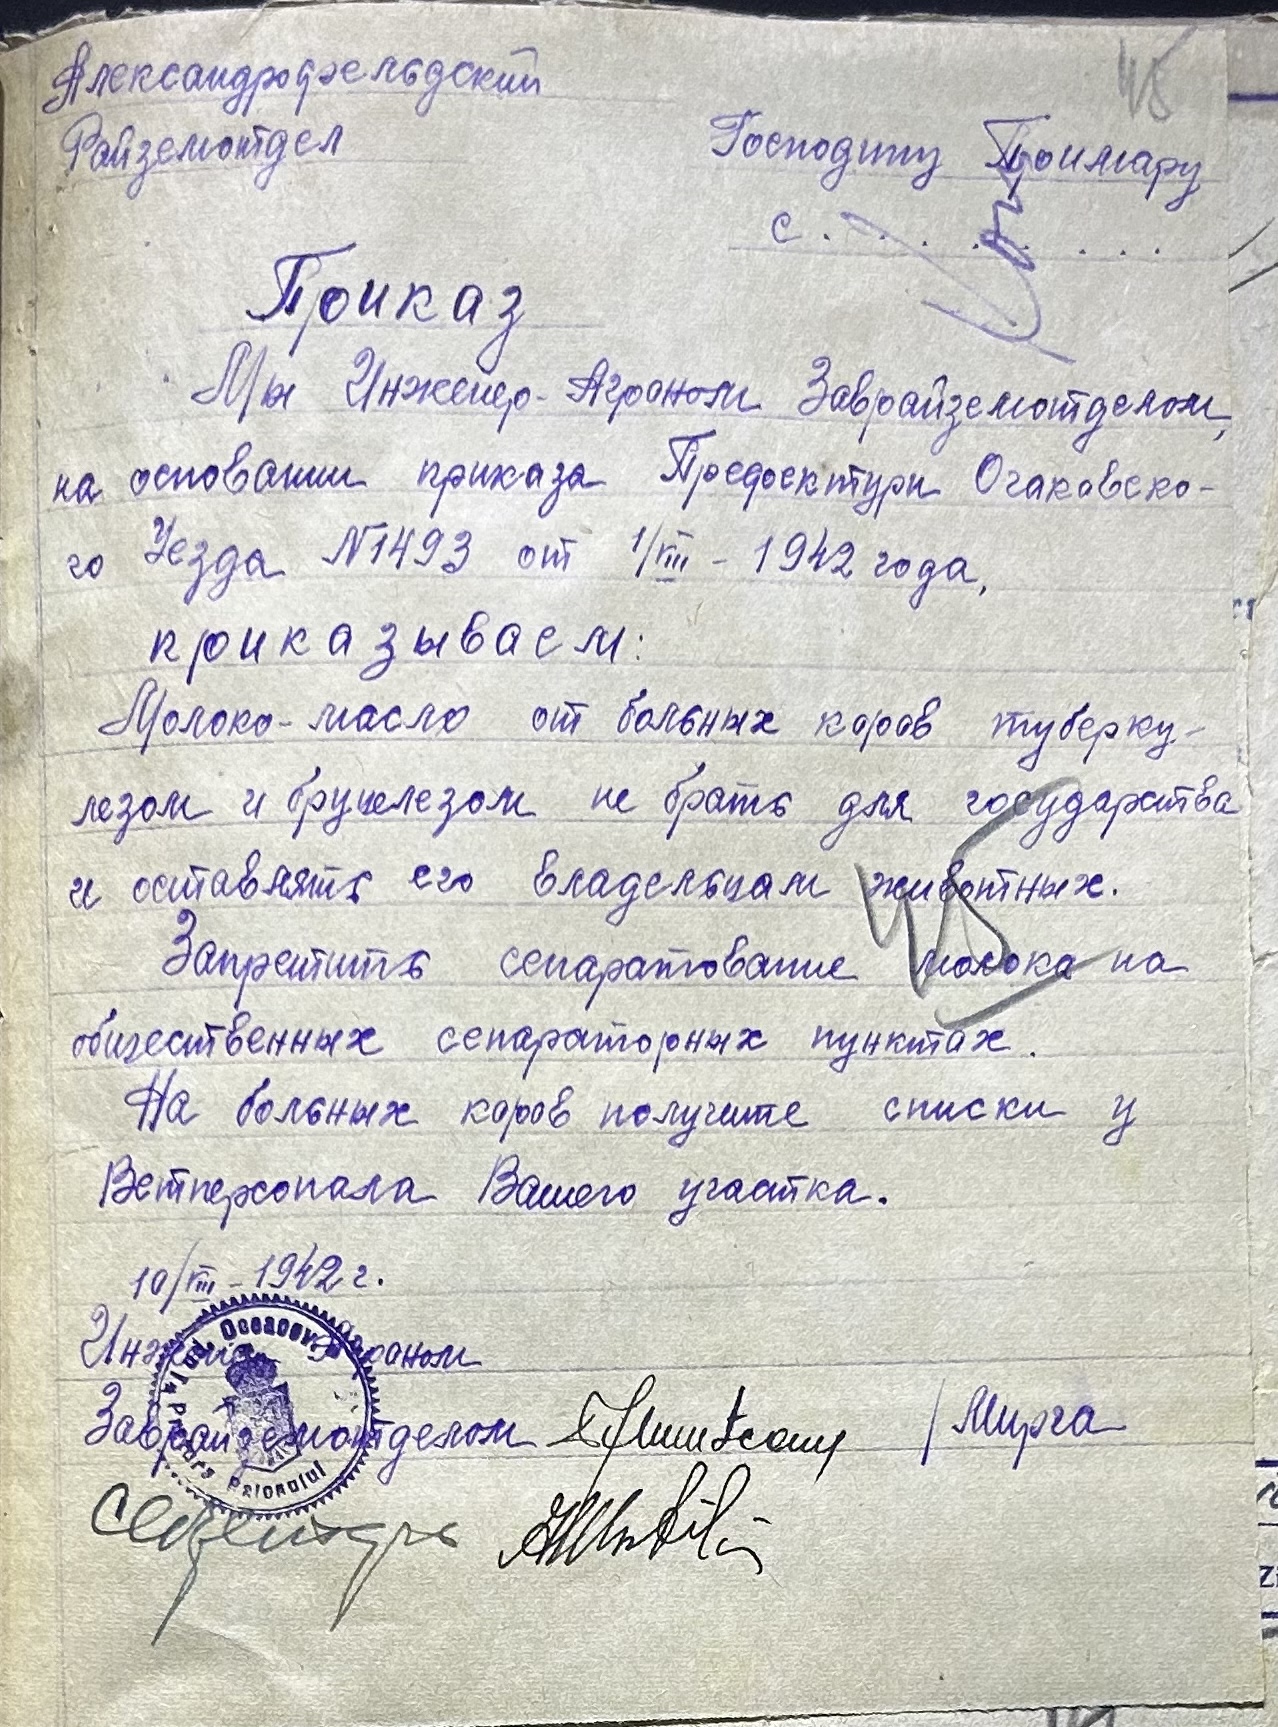 45
Александрофельдский
Райземотдел
Господину Примару
с. . . . . . . .
Приказ
Мы Инженер-Агроном Заврайземотделом,
на основании приказа Префектури Очаковско-
го Уезда №1493 от 1/VIII - 1942 года,
приказываем:
Молоко-масло от больных коров туберку-
лезом и бруцелезом не брать для государства
и оставлять его владельцам животных.
45
Запретить сепаратование молока на
общественных сепараторных пунктах.
На больных коров получите списки у
Ветперсонала Вашего участка.
10/VIII - 1942 г.
Инженер Агроном
Заврайземотделом / Мирга
Jud. Oceacov
Pretura Raionului
Секретарь